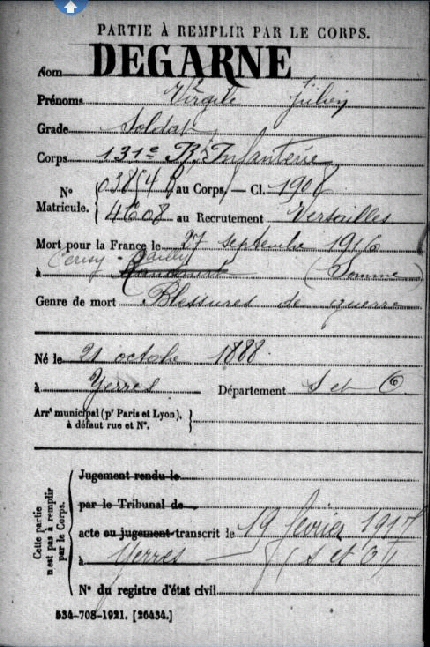 PARTIE À REMPLIR PAR LE CORPS.
Nom DEGARNE
Prénoms Virgile Julien
Grade Soldat
Corps 131e R. Infanterie
N° 03854 au Corps. — Cl. 1908
Matricule. 4608 au Recrutement Versailles
Mort pour la France le 27 septembre 1916
Cerisy - Gailly
à (Somme)
Genre de mort Blessures de guerre
Né le 21 octobre 1888
à Yerres Département S et O
Arrt municipal (pr Paris et Lyon),
à défaut rue et N°.
Cette partie
n'est pas à remplir
par le Corps.
Jugement rendu le
par le Tribunal de
acte ou jugement transcrit le 19 février 1917
à Yerres (S et O)
N° du registre d'état civil
534-708-1921. [26434.]